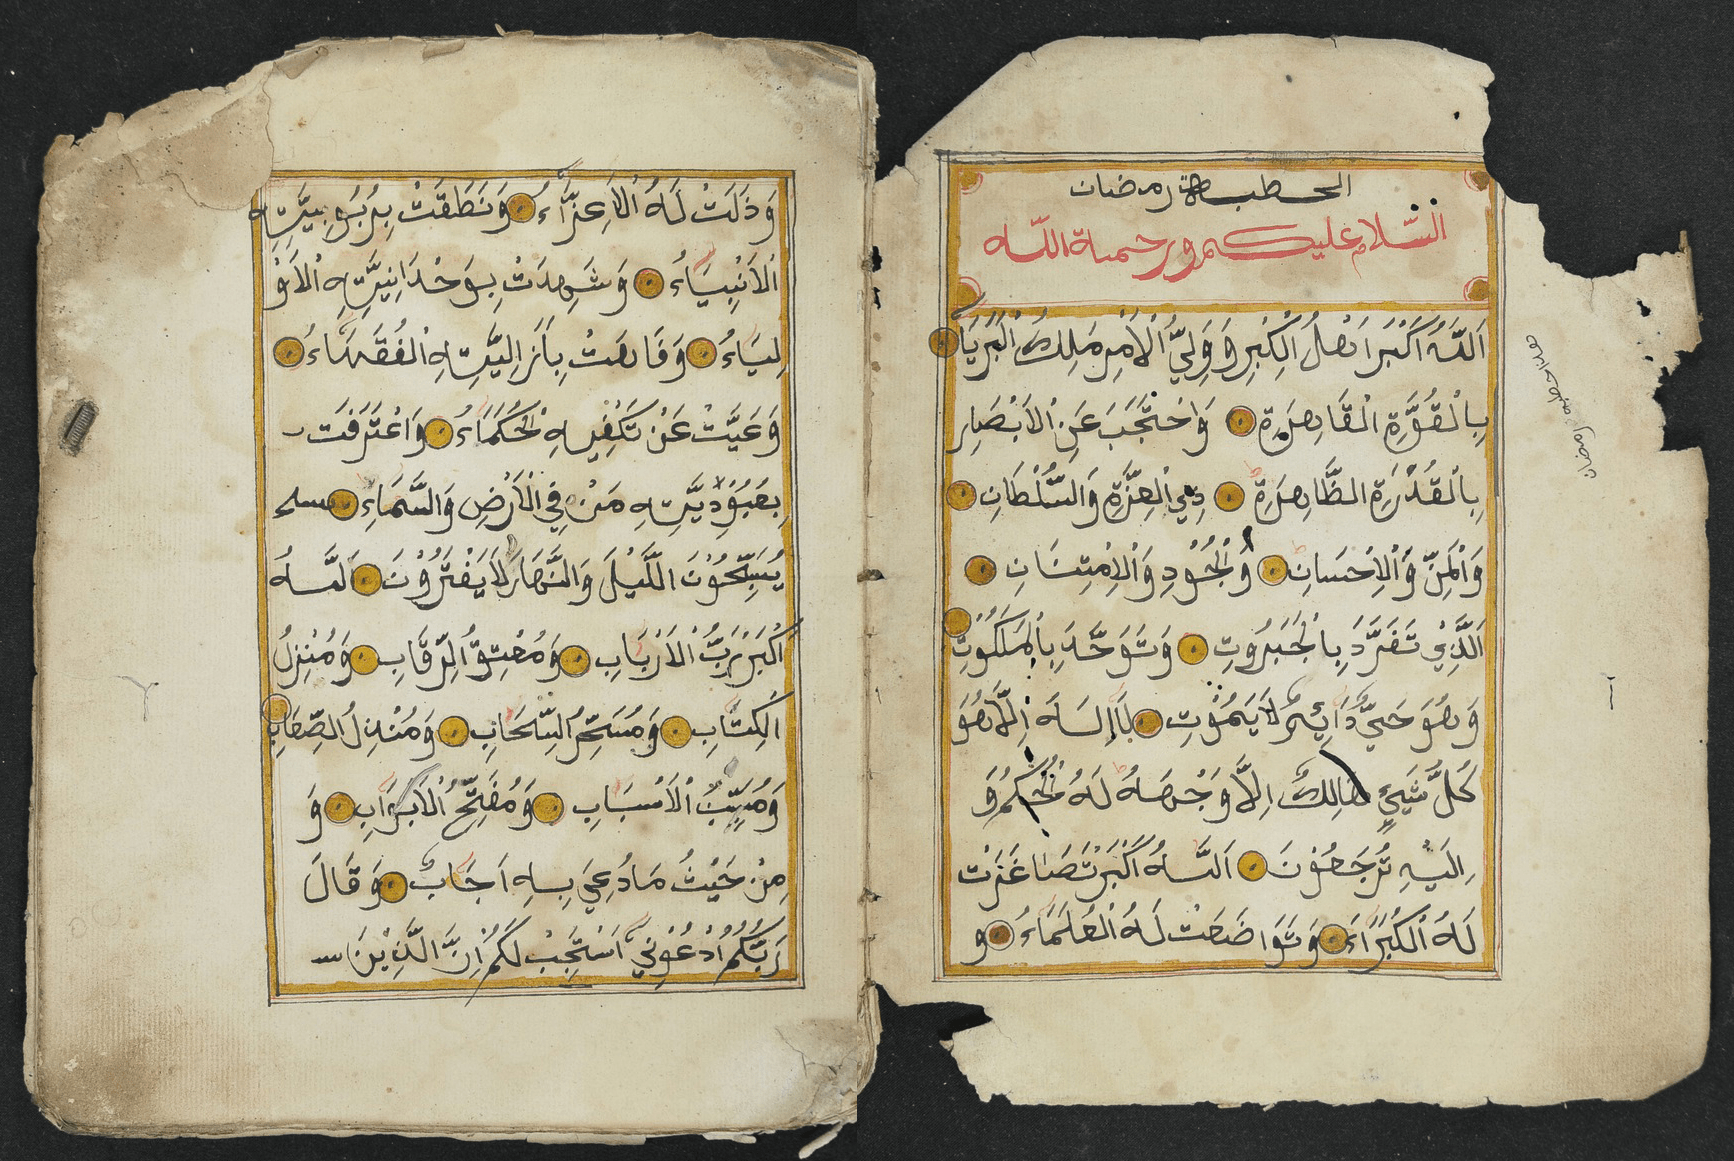 الخطبة رمضان
السّلام عليكم ورحمة اللّه
اَللّٰهُ اَكْبَرُ اَهْلُ الْكِبْرِ وَوَلِيُّ الْاَمْرِ مَلِكُ الْبَرَيَا
بِالْقُوَّةِ الْقَاهِرَةِ وَاحْتَجَبَ عَنِ الْاَبْصَارِ
بِالْقُدْرَةِ الظَّاهِرَةِ ذِي الْعِزَّةِ وَالسُّلْطَانِ
وَالْمَنِّ وَالْاِحْسَانِ وَالْجُوْدِ وَالْاِمْتِنَانِ
اَلَّذِيْ تَفَرَّدَ بِالْجَبَرُوتِ وَتَوَحَّدَ بِالْمَلَكُوْتِ
وَهُوَ حَيٌّ دَائِمٌ لَا يَمُوْتِ لَا اِلٰهَ اِلَّا هُوَ
كُلُّ شَيْءٍ هَالِكٌ اِلَّا وَجْهَهُ لَهُ الْحُكْمُ وَ
اِلَيْهِ تُرْجَعُوْنَ اَللّٰهُ اَكْبَرُ تَصَاغَرَتْ
لَهُ الْكُبَرَاءُ وَتَوَاضَعَتْ لَهُ الْعُلَمَاءُ و
هذا خطبة رمضان
وَذَلَّتْ لَهُ الْاَعِزَّاءُ وَنَطَقَتْ بِرُبُوبِيَّتِهِ
الْاَنْبِيَاءُ وَشَهِدَتْ بِوَحْدَانِيَّتِهِ الْاَوْ
لِيَاءُ وَقَامَتْ بِاَزَلِيَّتِهِ الْفُقَهَاءُ
وَعَيَّتْ عَنْ تَكْفِيهِ الْحُكَمَاءُ وَاعْتَرَفَتْ
بِعَبُوْدِيَّتِهِ مَنْ فِي الْاَرْضِ وَالسَّمَاءِ
يُسَبِّحُوْنَ اللَّيْلَ وَالنَّهَارَ لَا يَفْتَرُوْنَ اَللّٰهُ
اَكْبَرُ رَبُّ الْاَرْبَابِ وَمُعْتِقُ الرِّقَابِ وَمُنْزِلُ
الْكِتَابِ وَمُسَخِّرُ السَّحَابِ وَمُنْذِلُ الصِّعَابِ
وَمُسَبِّبُ الْاَسْبَابِ وَمُفَتِّحُ الْاَبْوَابِ وَ
مِنْ حَيْثُ مَا دُعِيَ بِهِ اَجَابَ وَقَالَ
رَبُّكُمُ ادْعُوْنِيْ اَسْتَجِبْ لَكُمْ اِنَّ الَّذِيْنَ
٢